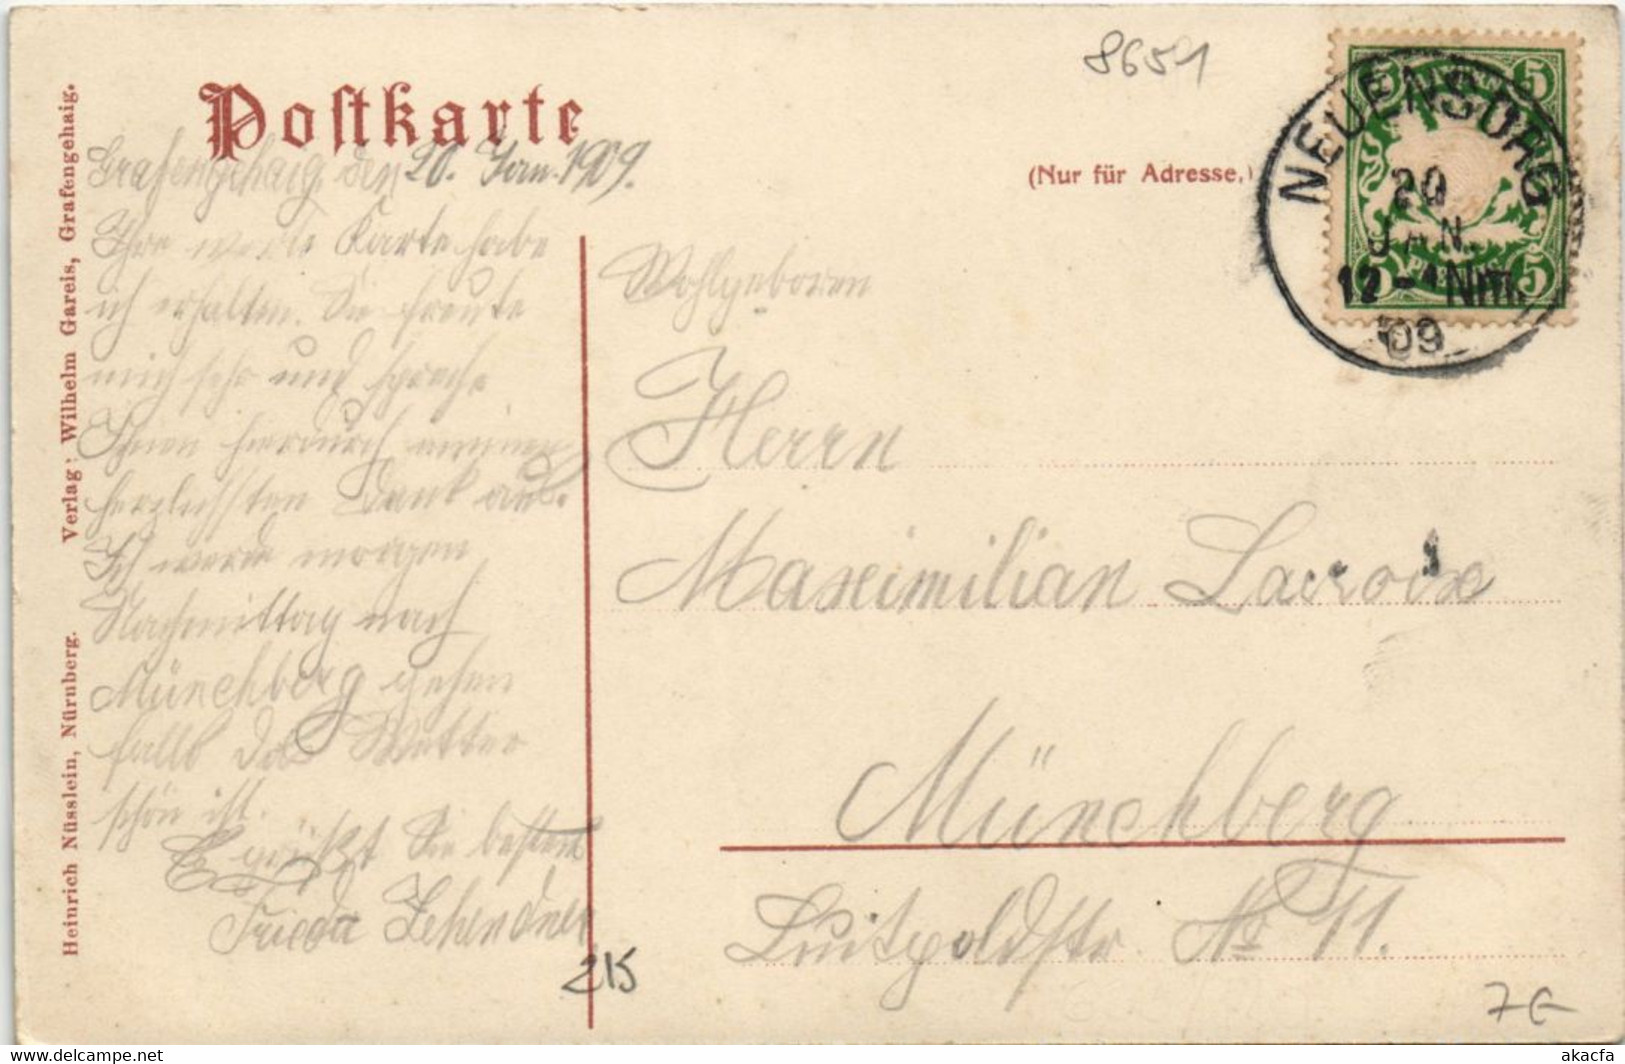 8651
Postkarte
Grafengehaig, den 20. Jan. 1909.
Ihre werte Karte habe
ich erhalten. Sie freute
mich sehr und spreche
Ihnen hierdurch meinen
herzlichsten Dank aus.
Ich werde morgen
Nachmittag nach
Münchberg gehen
falls das Wetter
schön ist.
Es grüßt Sie bestens
Frieda Zehendner
215
Verlag: Wilhelm Gareis, Grafengehaig.
Heinrich Nüsslein, Nürnberg.
(Nur für Adresse.)
NEUENSORG
20
JAN.
12 - 1 Nm.
09
5 5
5 5
Wohlgeboren
Herrn
Maximilian Lacroix
Münchberg
Luitpoldstr. No 11.
7 €
akacfa
www.delcampe.net